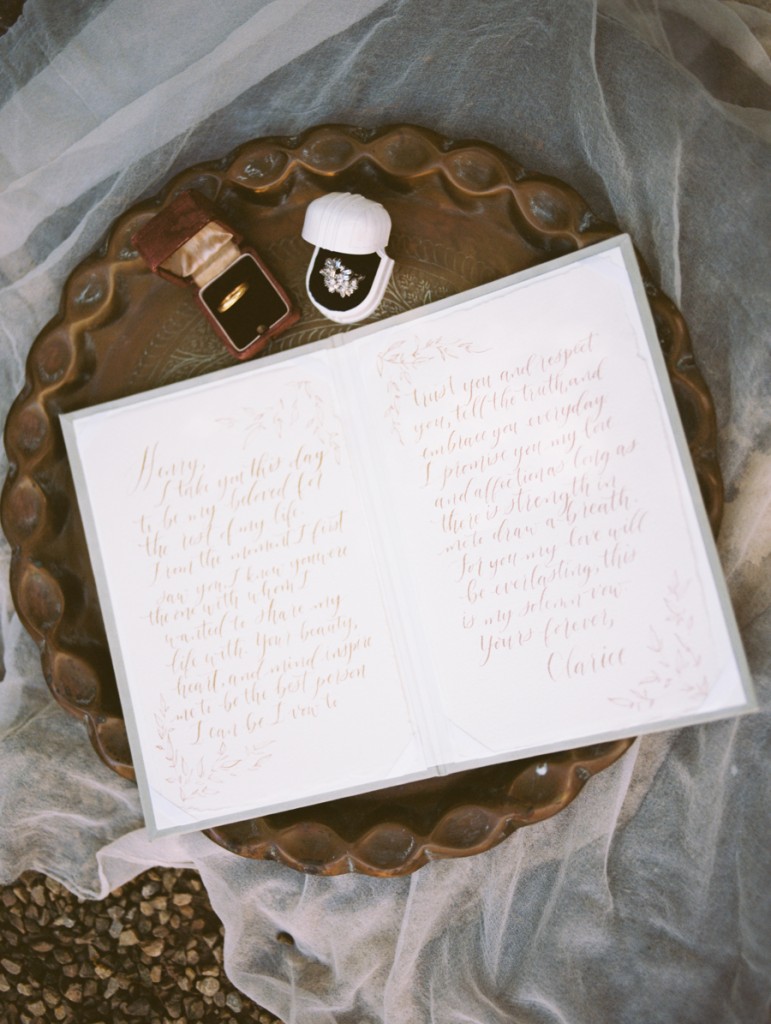 Henry,
I take you this day
to be my beloved for
the rest of my life.
From the moment I first
saw you, I knew you were
the one with whom I
wanted to share my
life with. Your beauty,
heart, and mind inspire
me to be the best person
I can be. I vow to
trust you and respect
you, tell the truth and
embrace you everyday.
I promise you my love
and affection as long as
there is strength in
me to draw a breath.
For you my love will
be everlasting, this
is my solemn vow
Yours forever,
Clarice